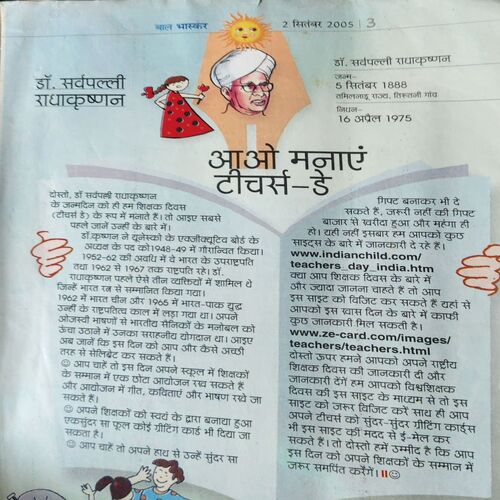 बाल भास्कर
2 सितंबर 2005 | 3
डॉ. सर्वपल्ली
राधाकृष्णन
डॉ. सर्वपल्ली राधाकृष्णन
जन्म-
5 सितंबर 1888
तमिलनाडू राज्य, तिरुतनी गांव
निधन-
16 अप्रैल 1975
आओ मनाएं
टीचर्स-डे
दोस्तो, डॉ सर्वपल्ली राधाकृष्णन
के जन्मदिन को ही हम शिक्षक दिवस
(टीचर्स डे) के रूप में मनाते हैं। तो आइए सबसे
पहले जानें उन्हीं के बारे में।
डॉ.कृष्णन ने यूनेस्को के एक्जीक्यूटिव बोर्ड के
अध्यक्ष के पद को 1948-49 में गौरान्वित किया।
1952-62 की अवधि में वे भारत के उपराष्ट्रपति
तथा 1962 से 1967 तक राष्ट्रपति रहे। डॉ.
राधाकृष्णन पहले ऐसे तीन व्यक्तियों में शामिल थे
जिन्हें भारत रत्न से सम्मानित किया गया।
1962 में भारत चीन और 1965 में भारत-पाक युद्ध
उन्हीं के राष्ट्रपतित्व काल में लड़ा गया था। अपने
ओजस्वी भाषणों से भारतीय सैनिकों के मनोबल को
ऊंचा उठाने में उनका सराहनीय योगदान था। आइए
अब जानें कि इस दिन को आप और कैसे अच्छी
तरह से सेलिब्रेट कर सकते हैं।
☺ आप चाहें तो इस दिन अपने स्कूल में शिक्षकों
के सम्मान में एक छोटा आयोजन रख सकते हैं
और आयोजन में गीत, कविताएं और भाषण रखे जा
सकते हैं।
☺ अपने शिक्षकों को स्वयं के द्वारा बनाया हुआ
एक सुंदर सा फूल कोई ग्रीटिंग कार्ड भी दिया जा
सकता है।
☺ आप चाहें तो अपने हाथ से उन्हें सुंदर सा
गिफ्ट बनाकर भी दे
सकते हैं, जरूरी नहीं की गिफ्ट
बाजार से खरीदा हुआ और महंगा ही
हो। यही नहीं इसबार हम आपको कुछ
साइट्स के बारे में जानकारी दे रहे हैं।
www.indianchild.com/
teachers_day_india.htm
क्या आप शिक्षक दिवस के बारे में
और ज्यादा जानना चाहते हैं तो आप
इस साइट को विजिट कर सकते हैं यहां से
आपको इस खास दिन के बारे में काफी
कुछ जानकारी मिल सकती है।
www.ze-card.com/images/
teachers/teachers.html
दोस्तो ऊपर हमने आपको अपने राष्ट्रीय
शिक्षक दिवस की जानकारी दी और
जानकारी देंगें हम आपको विश्वशिक्षक
दिवस की इस साइट के माध्यम से तो इस
साइट को जरूर विजिट करें साथ ही आप
अपने टीचर्स को सुंदर-सुंदर ग्रीटिंग कार्ड्स
भी इस साइट की मदद से ई-मेल कर
सकते हैं। तो दोस्तो हमें उम्मीद है कि आप
इस दिन को अपने शिक्षकों के सम्मान में
जरूर समर्पित करेंगें।॥☺